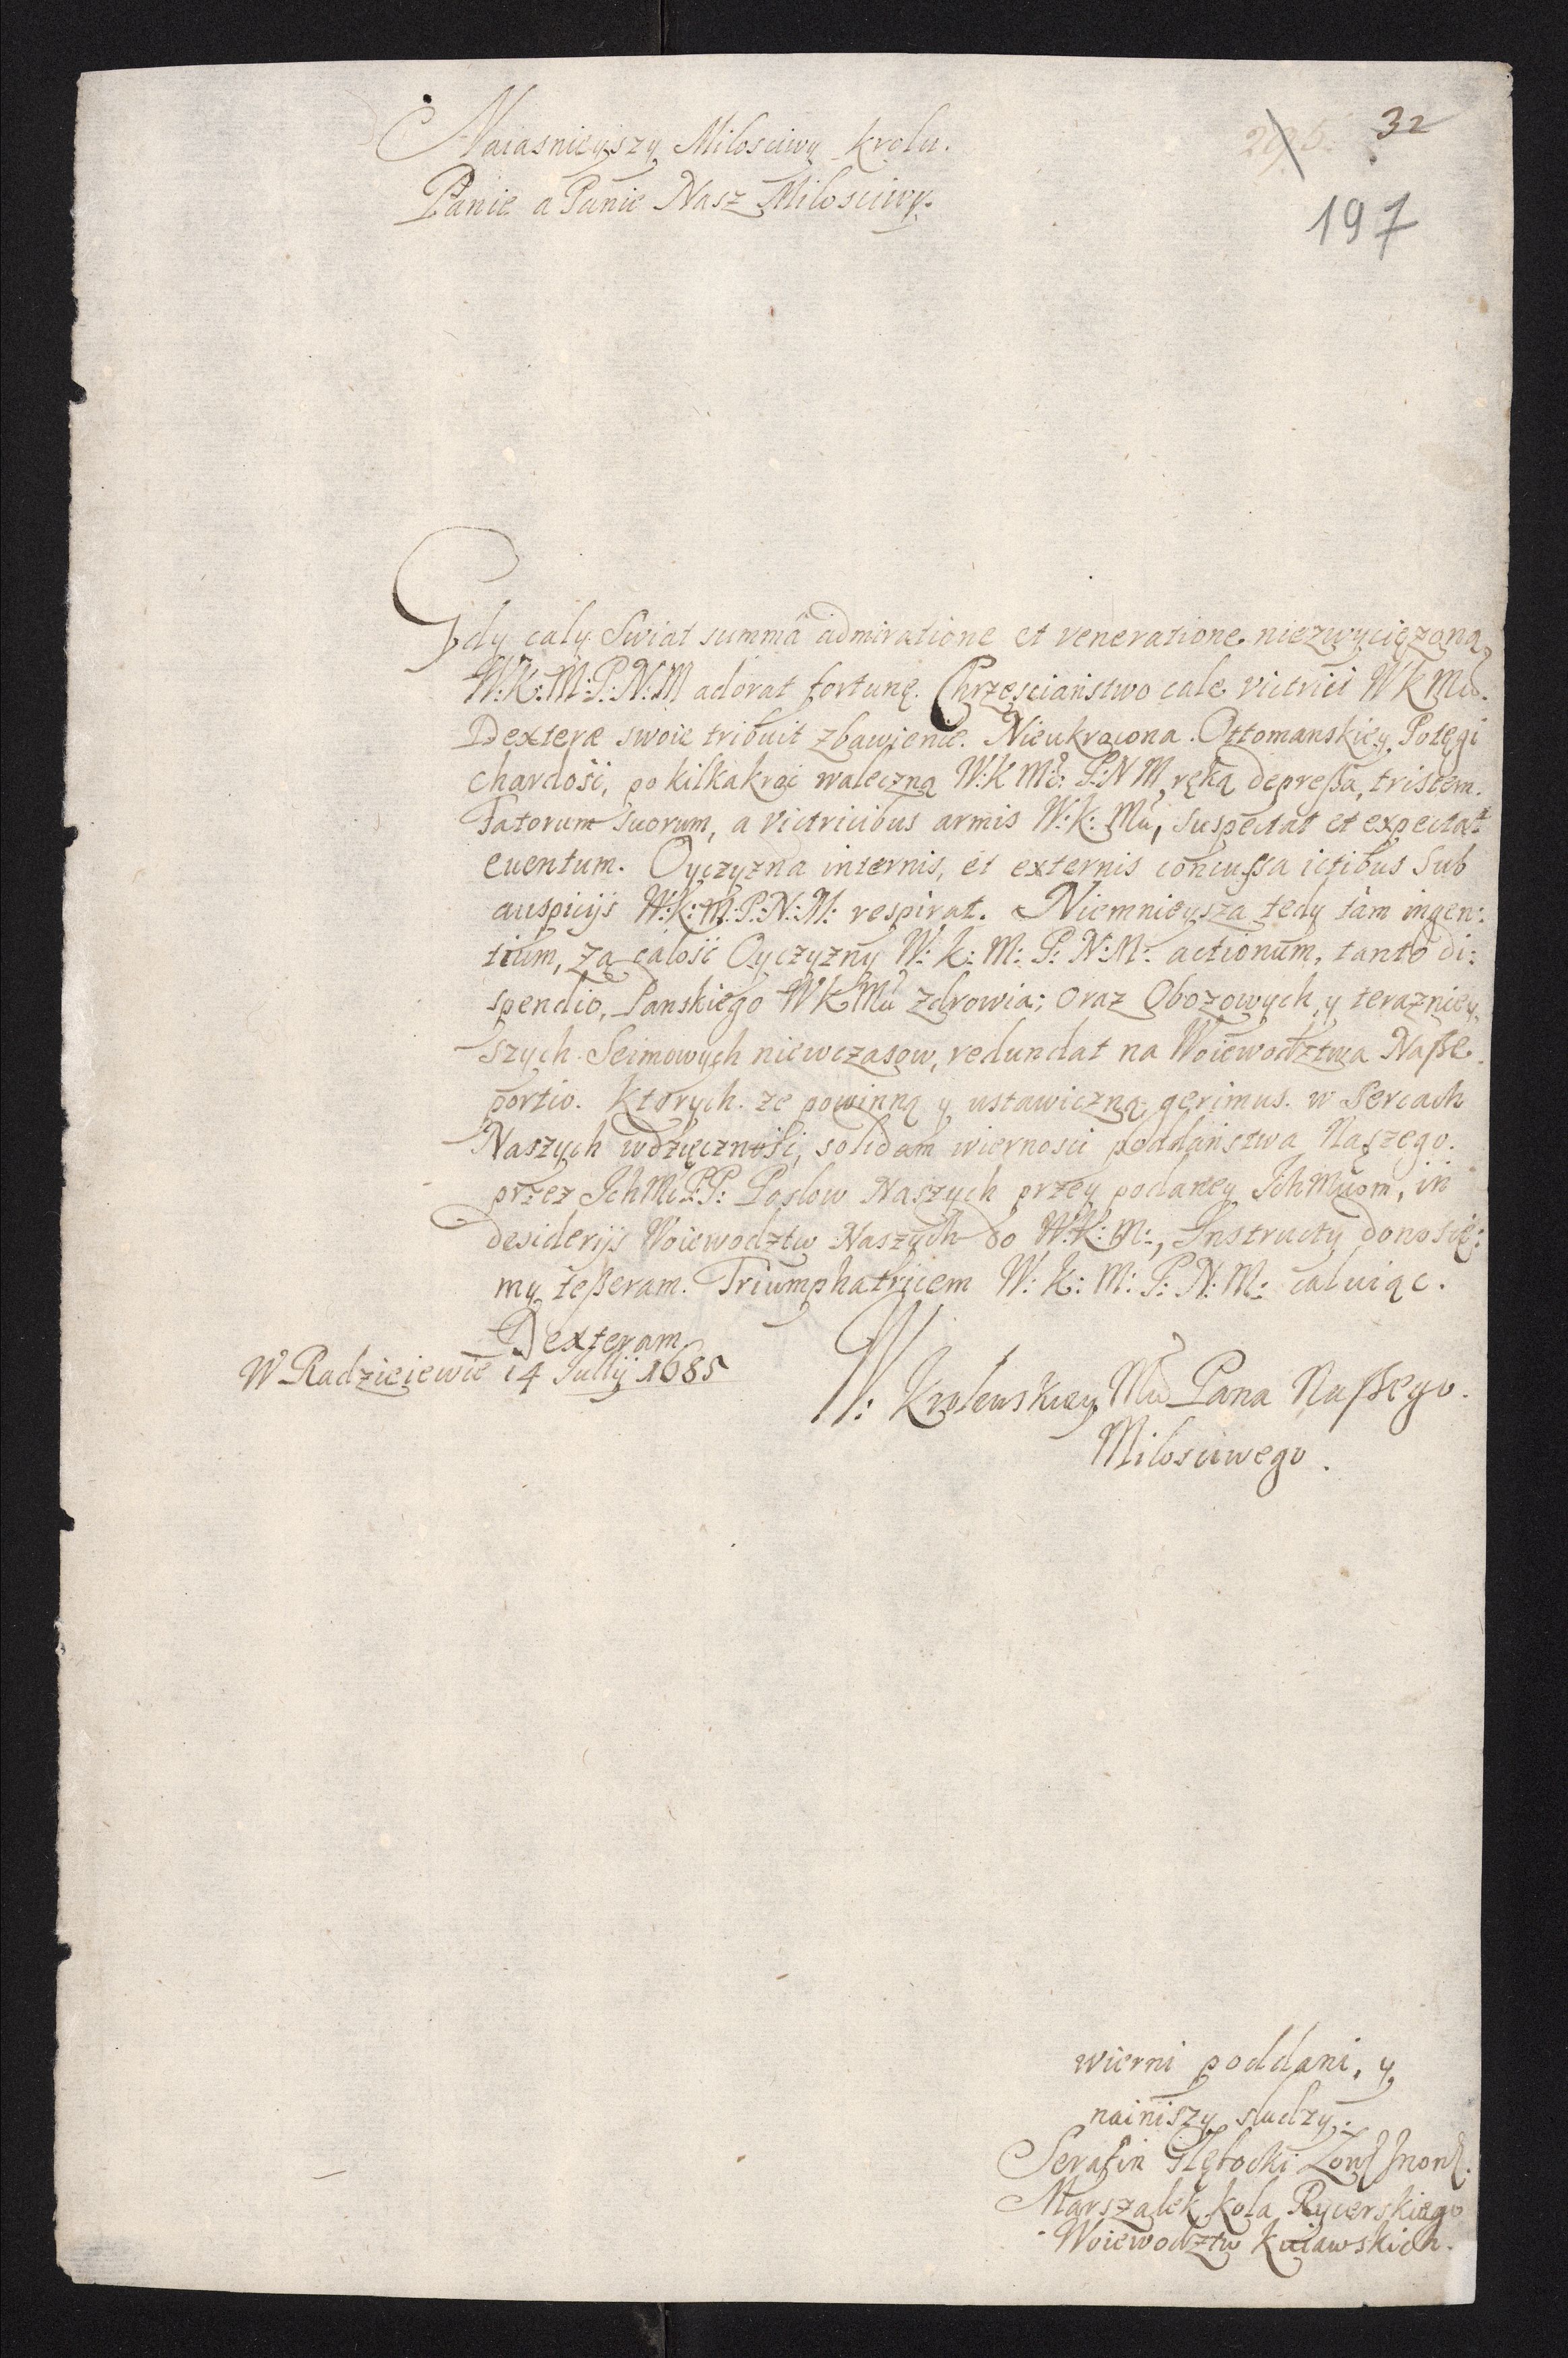 Naiasnieyszy Milosciwy krolu.
Panie a Panie Nasz Milosciwy.
32
197
Gdy caly Swiat summâ admiratione et veneratione niezwyciężoną
W:K:M:P:N:M adorat fortunę. Chrzesciaństwo cale victrici W K Mci.
Dexteræ swoie tribuit zbawienie. Nieukrocona Ottomanskiey Potęgi
chardość, po kilkakroć waleczną W:K Mci: P:N M, ręką depreßa, tristem
Fatorum suorum, a victricibus armis W:K: Mci, suspectat et expectat
euentum. Oyczyzna internis, et externis concussa ictibus sub
auspicijs W:K:M:P:N:M: respirat. Niemnieysza tedy tâm ingen:
tium, za całość Oyczyzny W: k: M: P: N:M: actionum, tanto di:
spendio, Panskiego W K Mci zdrowia; oraz Obozowych, y terazniey
szych Seimowych niewczasow, redundat na Woiewodztwa Naße
portio. Ktorych ze powinną y ustawiczną gerimus w Sercach
Naszych wdzięcznosci, solidam wiernosci poddaństwa Naszego.
przez IchMci PP: Posłow Naszych przey podaney IchMciom, in
desiderijs Woiewodztw Naszych do W:K:M:, Instructy donosie:
my teßeram. Triumphatricem W: K: M: P: N: M: caluiąc.
Dexteram
W Radzieiewie 14 Iulij 1685
W: Krolewskiey Mci Pana Naßego.
Milosciwego.
wierni poddani, y
nainiszy sludzy.
Serafin Głębocki
Marszalek kola Rycerskiego
Woiewodztw Kuiawskich.